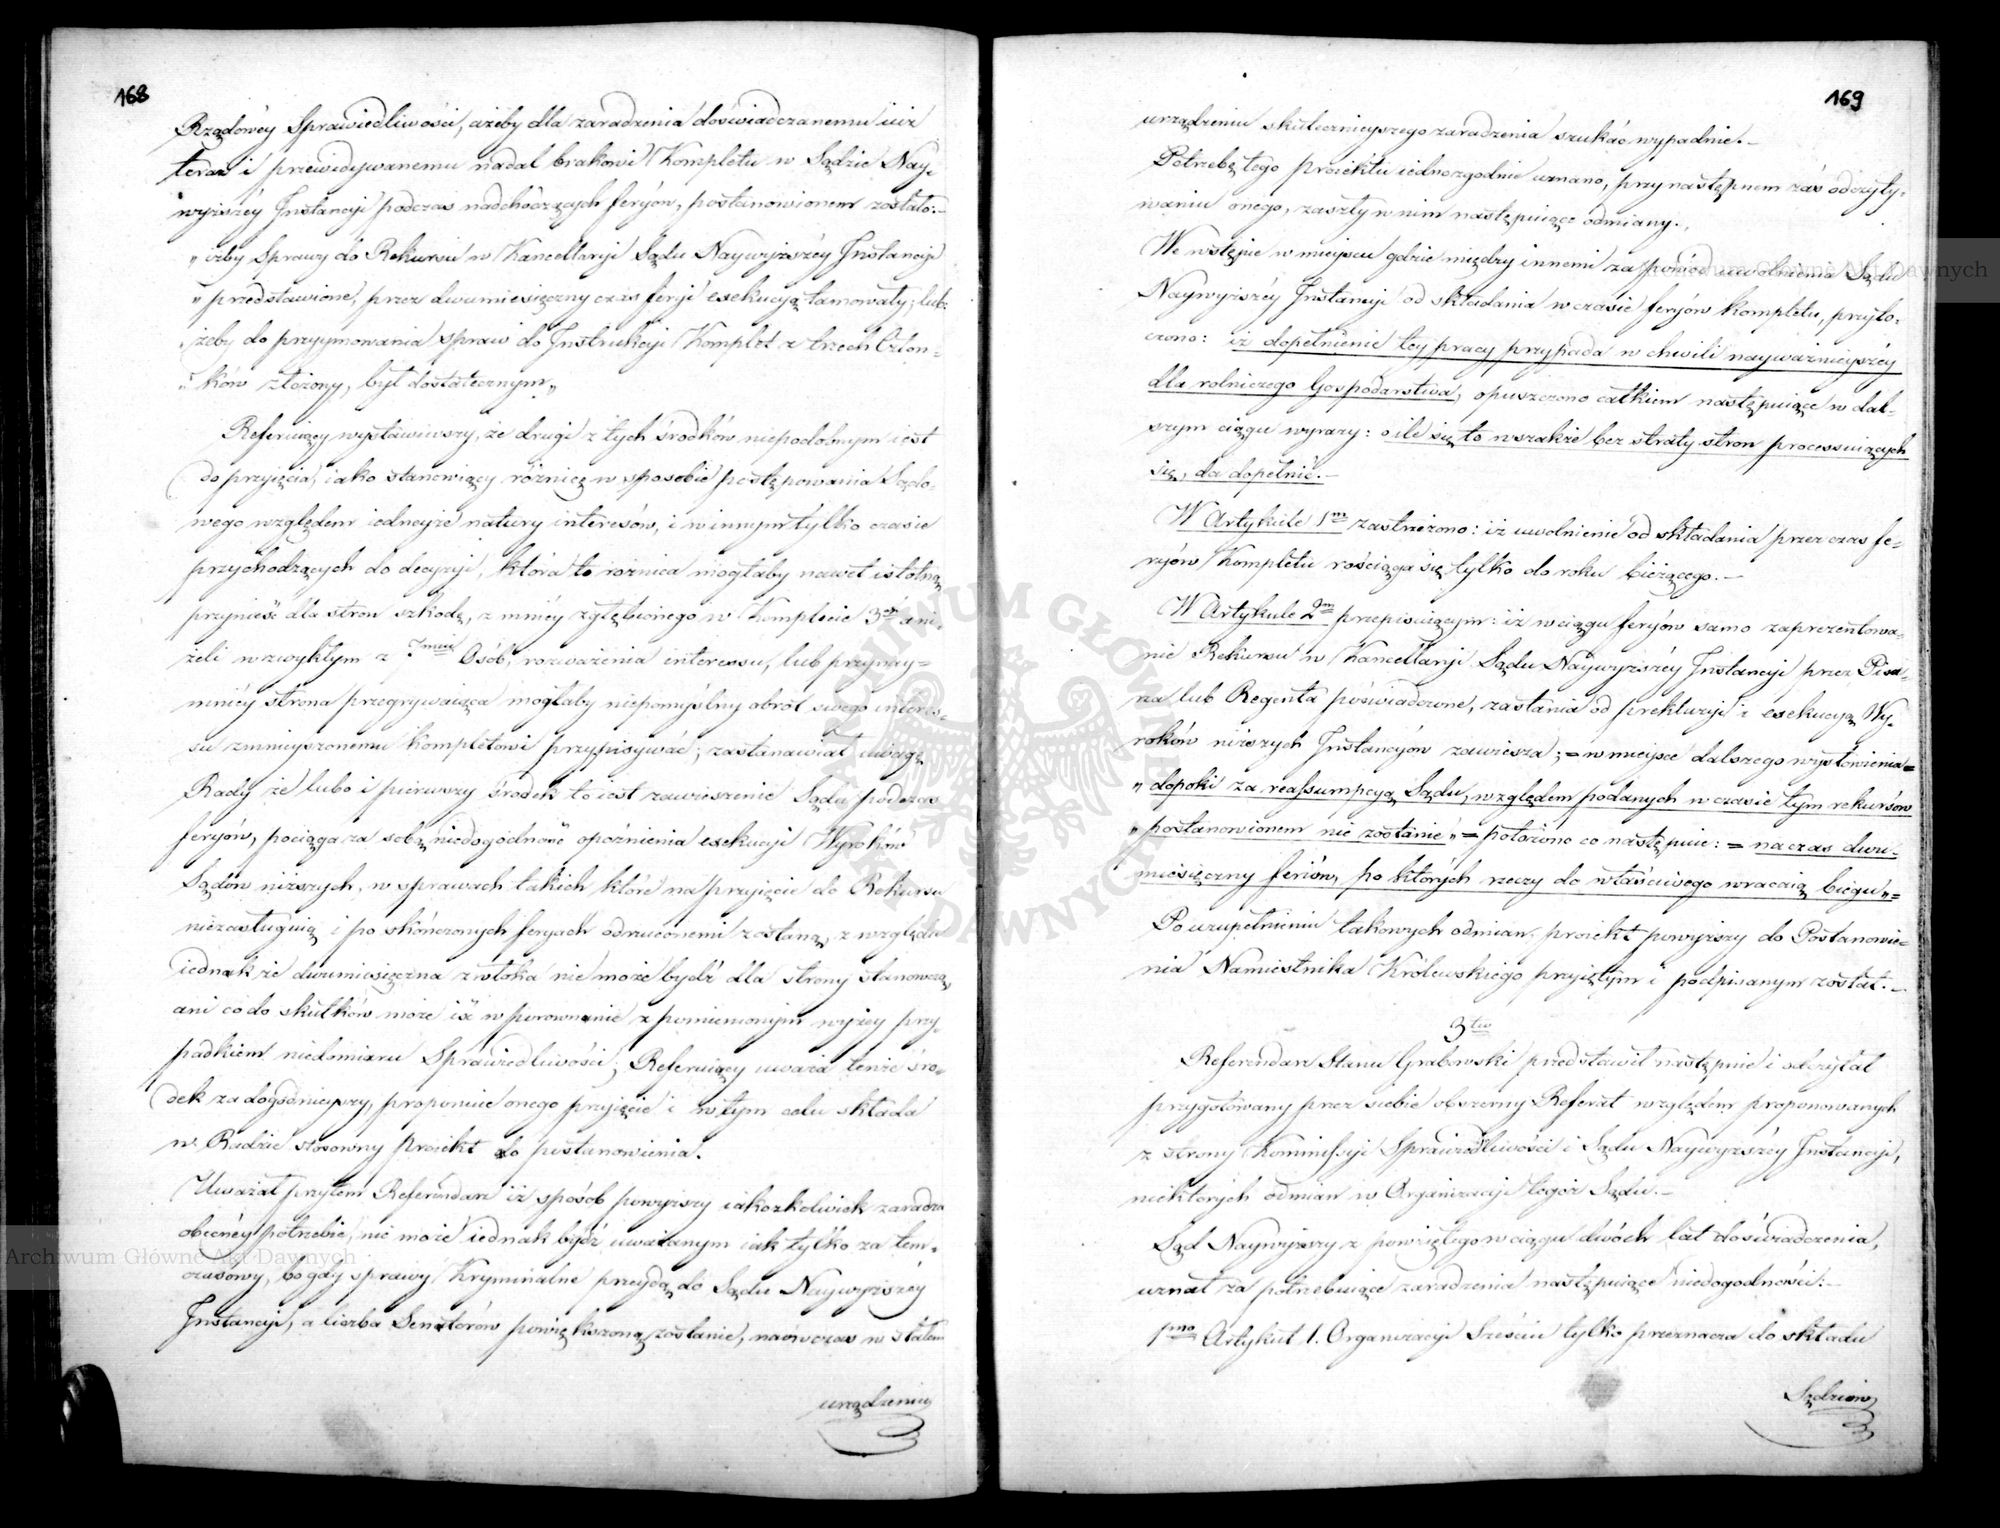 168
Rządowéy Sprawiedliwości, ażeby dla zaradzenia doświadczanemu iuż
teraz i przewidywanemu nadal brakowi Kompletu w Sądzie Nay-
wyższéy Instancyi podczas nadchodzących feryów, postanowionem zostało:—
„ iżby Sprawy do Rekursu w Kancellaryi Sądu Naywyższéy Instancyi
„ przedstawione, przez dwumiesięczny czas feryi exekucyą tamowały; lub
„ żeby do przyymowania spraw do Instrukcyi Komplet z trzech Człon-
„ ków złożony, był dostatecznym„
Referuiący wystawiwszy, że drugi z tych środków niepodobnym iest
do przyięcia, iako stanowiący różnicę w sposobie postępowania Sądo-
wego względem iedneyże natury interesów, i w innym tylko czasie
przychodzących do decyzyi, która to różnica mogłaby nawet istotną
przynieść dla stron szkodę, z mniéy zgłębionego w Komplecie 3ch ani-
żeli w zwykłym z 7miu Osób, rozważenia interessu, lub przynay-
mniéy strona przegrywaiąca mogłaby niepomyślny obrót swego interes-
su zmnieyszonemu Kompletowi przypisywać; zastanawiał uwagę
Rady że lubo i pierwszy środek to iest zawieszenie Sądu podczas
feryów, pociąga za sobą niedogodność opóźnienia exekucyi Wyroków
Sądów niższych, w sprawach takich które na przyięcie do Rekursu
niezasługuią i po skończonych feryach odrzuconemi zostaną, z względu
iednak że dwumiesięczna zwłoka nie może bydź dla strony stanowczą,
ani co do skutków może iść w porównanie z pomienionym wyżey przy-
padkiem niedomiaru Sprawiedliwości; Referuiący uważa tenże śro-
dek za dogodnieyszy, proponuie onego przyięcie i w tym celu składa
w Radzie stosowny Proiekt do postanowienia.
Uważał przytém Referendarz iż sposób powyższy iakożkolwiek zaradza
obecnéy potrzebie, nie może iednak bydź uważanym iak tylko za tem-
czasowy, bo gdy sprawy Kryminalne przeydą do Sądu Naywyższéy
Instancyi, a liczba Senatorów powiększoną zostanie, naówczas w stałem
urządzeniu
169
urządzeniu skutecznieyszego zaradzenia szukać wypadnie.—
Potrzebę tego proiektu iednozgodnie uznano, przy następnem zaś odczyty-
waniu onego, zaszły w nim następuiące odmiany.
We wstępie w mieyscu gdzie między innemi za powód uwolnienia Sądu
Naywyższéy Instancyi od składania w czasie feryów kompletu, przyto-
czono: iż dopełnienie tey pracy przypada w chwili nayważnieyszéy
dla rolniczego Gospodarstwa, opuszczono całkiem następuiące w dal-
szym ciągu wyrazy: o ile się to wszakże bez straty stron processuiących
się, da dopełnić.—
W Artykule 1m zastrzeżono: iż uwolnienie od składania przez czas fe-
ryów Kompletu rościąga się tylko do roku bieżącego.—
W Artykule 2m przepisuiącym: iż w ciągu feryów samo zaprezentowa-
nie Rekursu w Kancellaryi Sądu Naywyższéy Instancyi przez Pisa-
rza lub Regenta poświadczone, zasłania od prekluzyi i exekucyą Wy-
roków niższych Instancyów zawiesza; = w mieysce dalszego wysłowienia =
„ dopoki za reassumpcyą Sądu, względem podanych w czasie tym rekursów
„ postanowionem nie zostanie „ = położono co następuie: = na czas dwu-
miesięczny feriów, po których rzeczy do właściwego wracaią biegu„=
Po uzupełnieniu takowych odmian, proiekt powyższy do Postanowie-
nia Namiestnika Królewskiego przyiętym i podpisanym został.—
3tio
Referendarz Stanu Grabowski przedstawił następnie i odczytał
przygotowany przez siebie obszerny Referat względem proponowanych
z strony Kommissyi Sprawiedliwości i Sądu Naywyższéy Instancyi,
niektórych odmian w Organizacyi tegoż Sądu.—
Sąd Naywyższy z powziętego w ciągu dwóch lat doświadczenia,
uznał za potrzebuiące zaradzenia następuiące niedogodności:—
1mo Artykuł 1. Organizacyi Sześciu tylko przeznacza do składu
Sędziów
Archiwum Główne Akt Dawnych
Archiwum Główne Akt Dawnych
ARCHIWUM GŁÓWNE AKT DAWNYCH